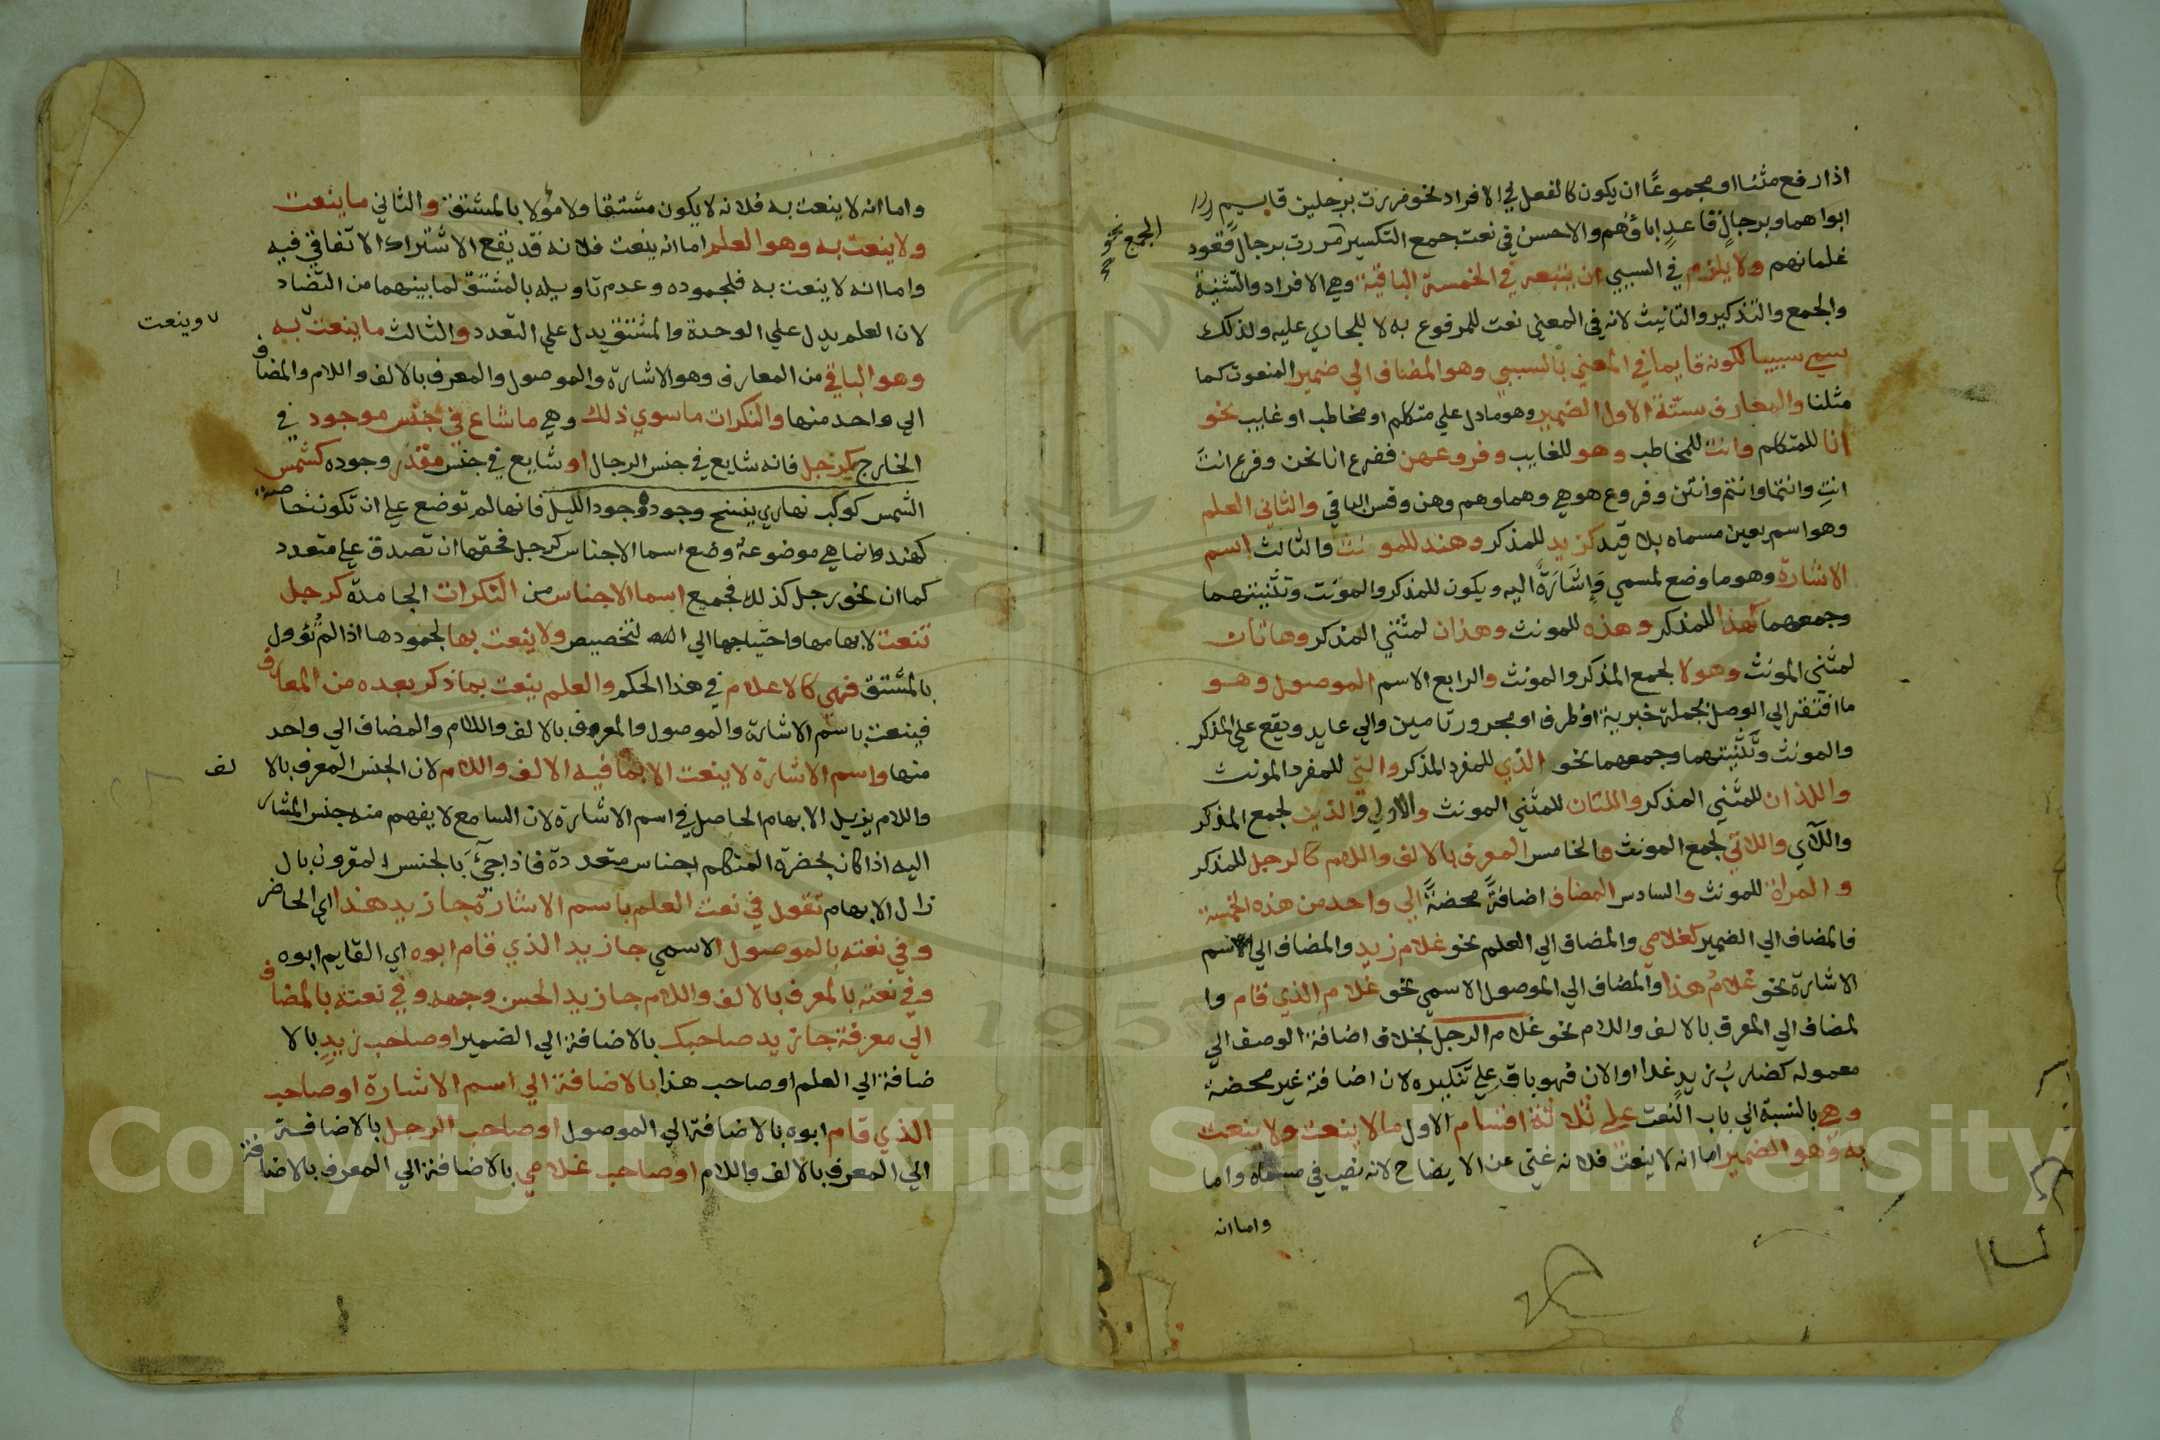 اذا رفع مثنا او مجموعًا ان يكون كالفعل في الافراد نحو مررت برجلين قايم
ابواهما وبرجالٍ قاعدٍ اباؤهم والاحسن في نعت جمع التكسير مررت برجال قعود
الجمع نحو
غلمانهم ولا يلزم في السببي ان يتبعه في الخمسة الباقية وهي الافراد والتثنية
والجمع والتذكير والتانيث لانه في المعني نعت للمرفوع به لا للجاري عليه ولذلك
سمي سببيا لكونه قايما في المعني بالسببي وهو المضاف الي ضمير المنعوت كما
مثلنا والمعارف ستة الاول الضمير وهو ما دل علي متكلم او مخاطب او غايب نحو
انا للمتكلم وانت للمخاطب وهو للغايب وفروعهن ففرع انا نحن وفرع انتَ
انتِ وانتما وانتم وانتن وفروع هو هي وهما وهم وهن وقس الباقي والثاني العلم
وهو اسم يعين مسماه بلا قيد كزيد للمذكر وهند للمونث والثالث اسم
الاشارة وهو ما وضع لمسمي وَاِشَارَةً اليه ويكون للمذكر والمونث وتثنيتهما
وجمعهما كهذا للمذكر وهذه للمونث وهذان لمثني المذكر وهاتان
لمثني المونث وهولا لجمع المذكر والمونث والرابع الاسم الموصول وهو
ما افتقر الي الوصل بجملة خبرية او ظرف او مجرور تامين والي عايد ويقع علي المذكر
والمونث وتثنيتهما وجمعهما نحو الذي للمفرد المذكر والتي للمفرد المونث
واللذان للمثني المذكر واللتان للمثني المونث والاولي والذين لجمع المذكر
واللآي واللاتي لجمع المونث والخامس المعرف بالالف واللام كالرجل للمذكر
والمراة للمونث والسادس المضاف اضافةً محضةً الي واحد من هذه الخمسة
فالمضاف الي الضمير كغلامي والمضاف الي العلم نحو غلام زيد والمضاف الي الاسم
الاشارة نحو غلامُ هذا والمضاف الي الموصول الاسمي نحو غلام الذي قام وا
لمضاف الي المعرف بالالف واللام نحو غلام الرجل بخلاف اضافة الوصف الي
معموله كضاربُ زيدٍ غدا او الان فهو باقٍ علي تنكيره لان اضافته غير محضة
وهي بالنسبة الي باب النعت علي ثلاثة اقسام الاول مالا ينعت ولا ينعت
به وهو الضمير اما انه لا ينعت فلانه غني عن الايضاح لانه نص في مسماه واما
واما انه
واما انه لا ينعت به فلانه لا يكون مشتقا ولا مؤلا بالمشتق والثاني ما ينعت
ولا ينعت به وهو العلم اما انه ينعت فلانه قد يقع الاشتراك الاتفاقي فيه
واما انه لا ينعت به فلجموده وعدم تاويله بالمشتق لما بينهما من التضاد
لان العلم يدل علي الوحدة والمشتق يدل علي التعدد والثالث ما ينعت به
وينعت
وهو الباقي من المعارف وهو الاشارة والموصول والمعرف بالالف واللام والمضاف
الي واحد منها والنكرات ما سوي ذلك وهي ما شاع في جنس موجود في
الخارج كرجل فانه شايع في جنس الرجال او شايع في جنس مقدر وجوده كشمس
الشمس كوكب نهاري ينسخ وجوده وجود الليل فانها لم توضع علي ان تكون خاصة
كهند وانما هي موضوعة وضع اسما الاجناس كرجل فحقها ان تصدق علي متعدد
كما ان نحو رجل كذلك فجميع اسما الاجناس من النكرات الجامدة كرجل
تنعت لابهامها واحتياجها الي التخصيص ولا ينعت بها لجمودها اذا لم تُؤول
بالمشتق فهي كالاعلام في هذا الحكم والعلم ينعت بما ذكر بعده من المعارف
فينعت باسم الاشارة والموصول والمعروف بالالف واللام والمضاف الي واحد
منها واسم الاشارة لا ينعت الا بما فيه الالف واللام لان الجنس المعرف بالا
لف
واللام يزيل الابهام الحاصل في اسم الاشارة لان السامع لا يفهم منه جنس المشار
اليه اذا كان بحضرة المتكلم اجناس متعددة فاذا جئَ بالجنس المقرون بال
زال الابهام تقول في نعت العلم باسم الاشارة جا زيد هذا اي الحاضر
وفي نعته بالموصول الاسمي جا زيد الذي قام ابوه اي القايم ابوه
وفي نعته بالمعرف بالالف واللام جا زيد الحسن وجهه وفي نعته بالمضاف
الي معرفة جا زيد صاحبك بالاضافة الي الضمير او صاحب زيدٍ بالا
ضافة الي العلم او صاحب هذا بالاضافة الي اسم الاشارة او صاحب
الذي قام ابوه بالاضافة الي الموصول او صاحب الرجل بالاضافة
الي المعرف بالالف واللام او صاحب غلامي بالاضافة الي المعرف بالاضافة
1957
Copyright © King Saud University